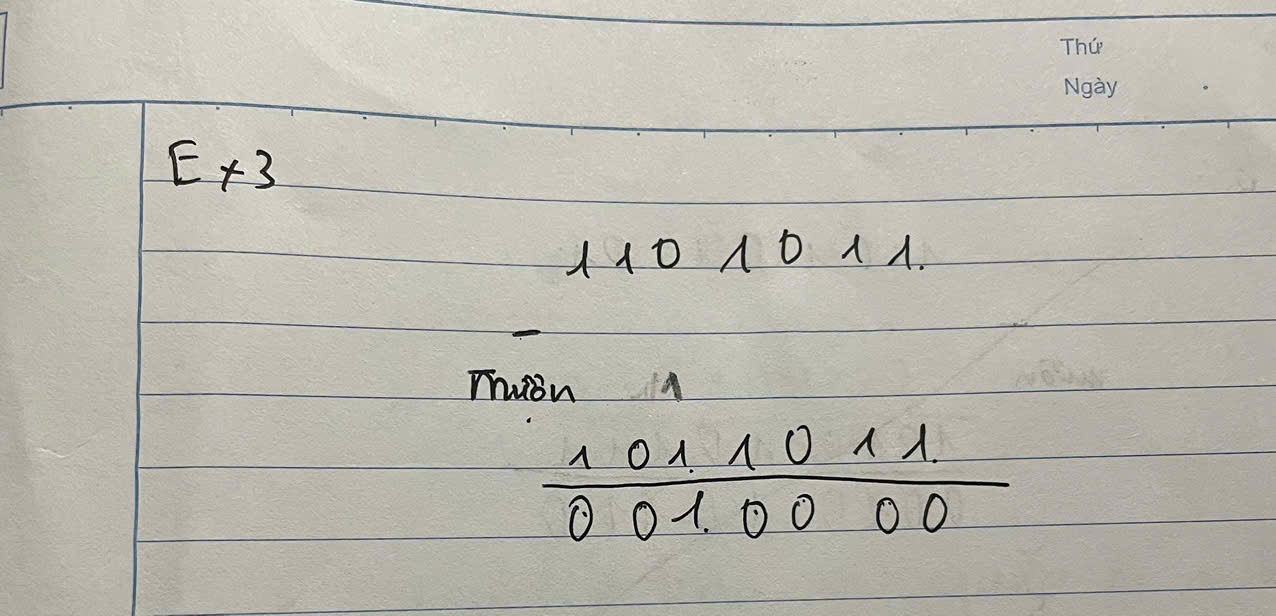 Thứ
Ngày
Ex3
1 1 0 1 0 1 1.
-
mượn 1
1 0 1. 1 0 1 1.
0 0 1. 0 0 0 0